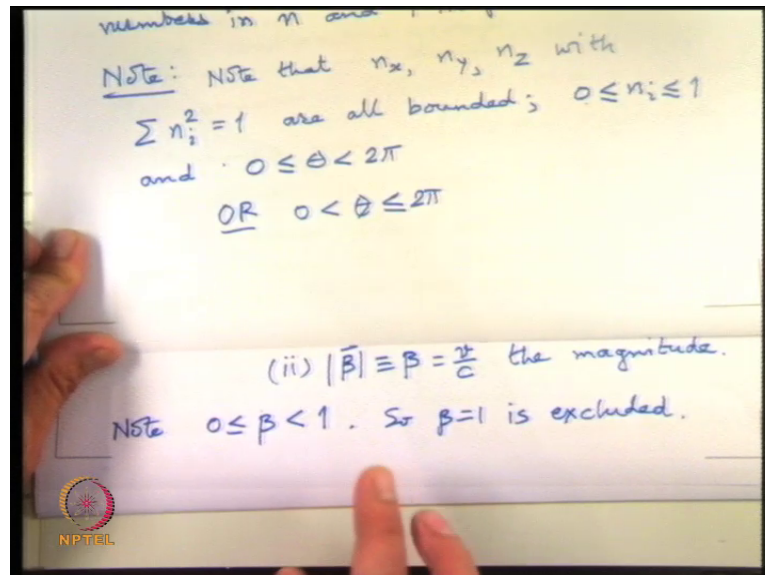 numbers in n and 1
Note: Note that nx, ny, nz with
Σ ni² = 1 are all bounded; 0 ≤ ni ≤ 1
and 0 ≤ θ < 2π
OR 0 < θ ≤ 2π
(ii) |β̄| ≡ β = v/c the magnitude.
Note 0 ≤ β < 1. So β=1 is excluded.
NPTEL